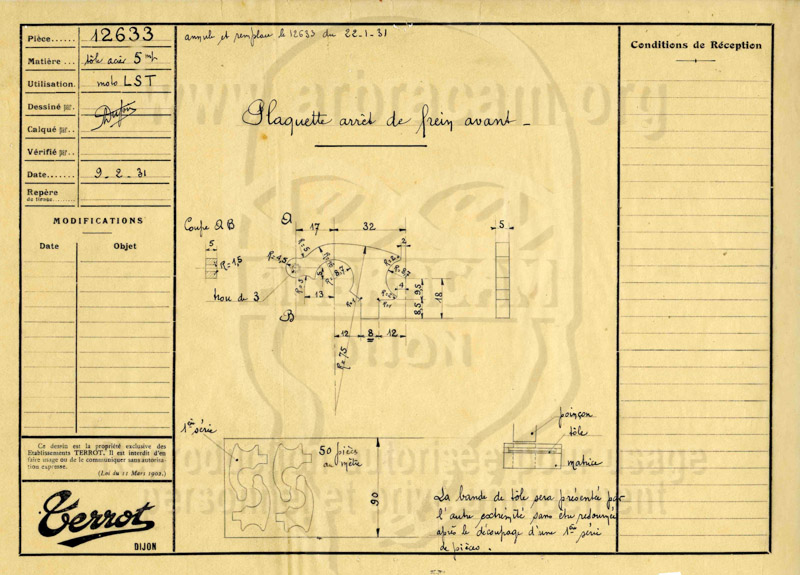 Pièce...... 12633
Matière... tôle acier 5 m/m
Utilisation. moto LST
Dessiné par.
Calqué par..
Vérifié par..
Date....... 9-2-31
Repère
du tirage
MODIFICATIONS
Date Objet
Ce dessin est la propriété exclusive des
Etablissements TERROT. Il est interdit d'en
faire usage ou de le communiquer sans autorisa-
tion expresse.
(Loi du 11 Mars 1902.)
Terrot
DIJON
annule et remplace le 12633 du 22-1-31
Plaquette arrêt de frein avant -
Coupe AB
A
17 32
5
5
2
R=1,5
R=1,5
R=5
R=8,7
R=8,2
4
trou de 3
R=3
13
8,5 9,5
18
B
12 8 12
R=75
1ère série
50 pièces
au mètre
90
poinçon
tôle
matrice
La bande de tôle sera présentée par
l'autre extrémité sans être retournée
après le découpage d'une 1ère série
de pièces.
Conditions de Réception
www.arbracam.org
ARBRACAM
DIJON